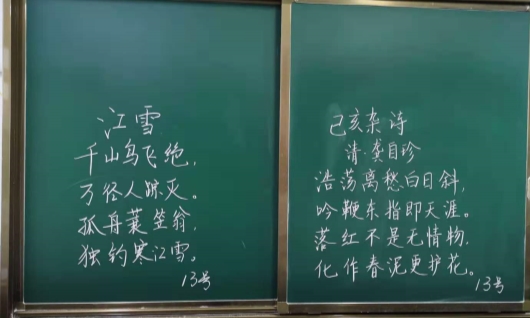 江雪
千山鸟飞绝,
万径人踪灭。
孤舟蓑笠翁,
独钓寒江雪。
13号
己亥杂诗
清·龚自珍
浩荡离愁白日斜,
吟鞭东指即天涯。
落红不是无情物,
化作春泥更护花。
13号